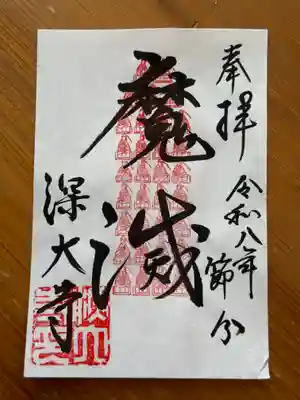 奉拝 令和八年 節分
魔滅
深大寺